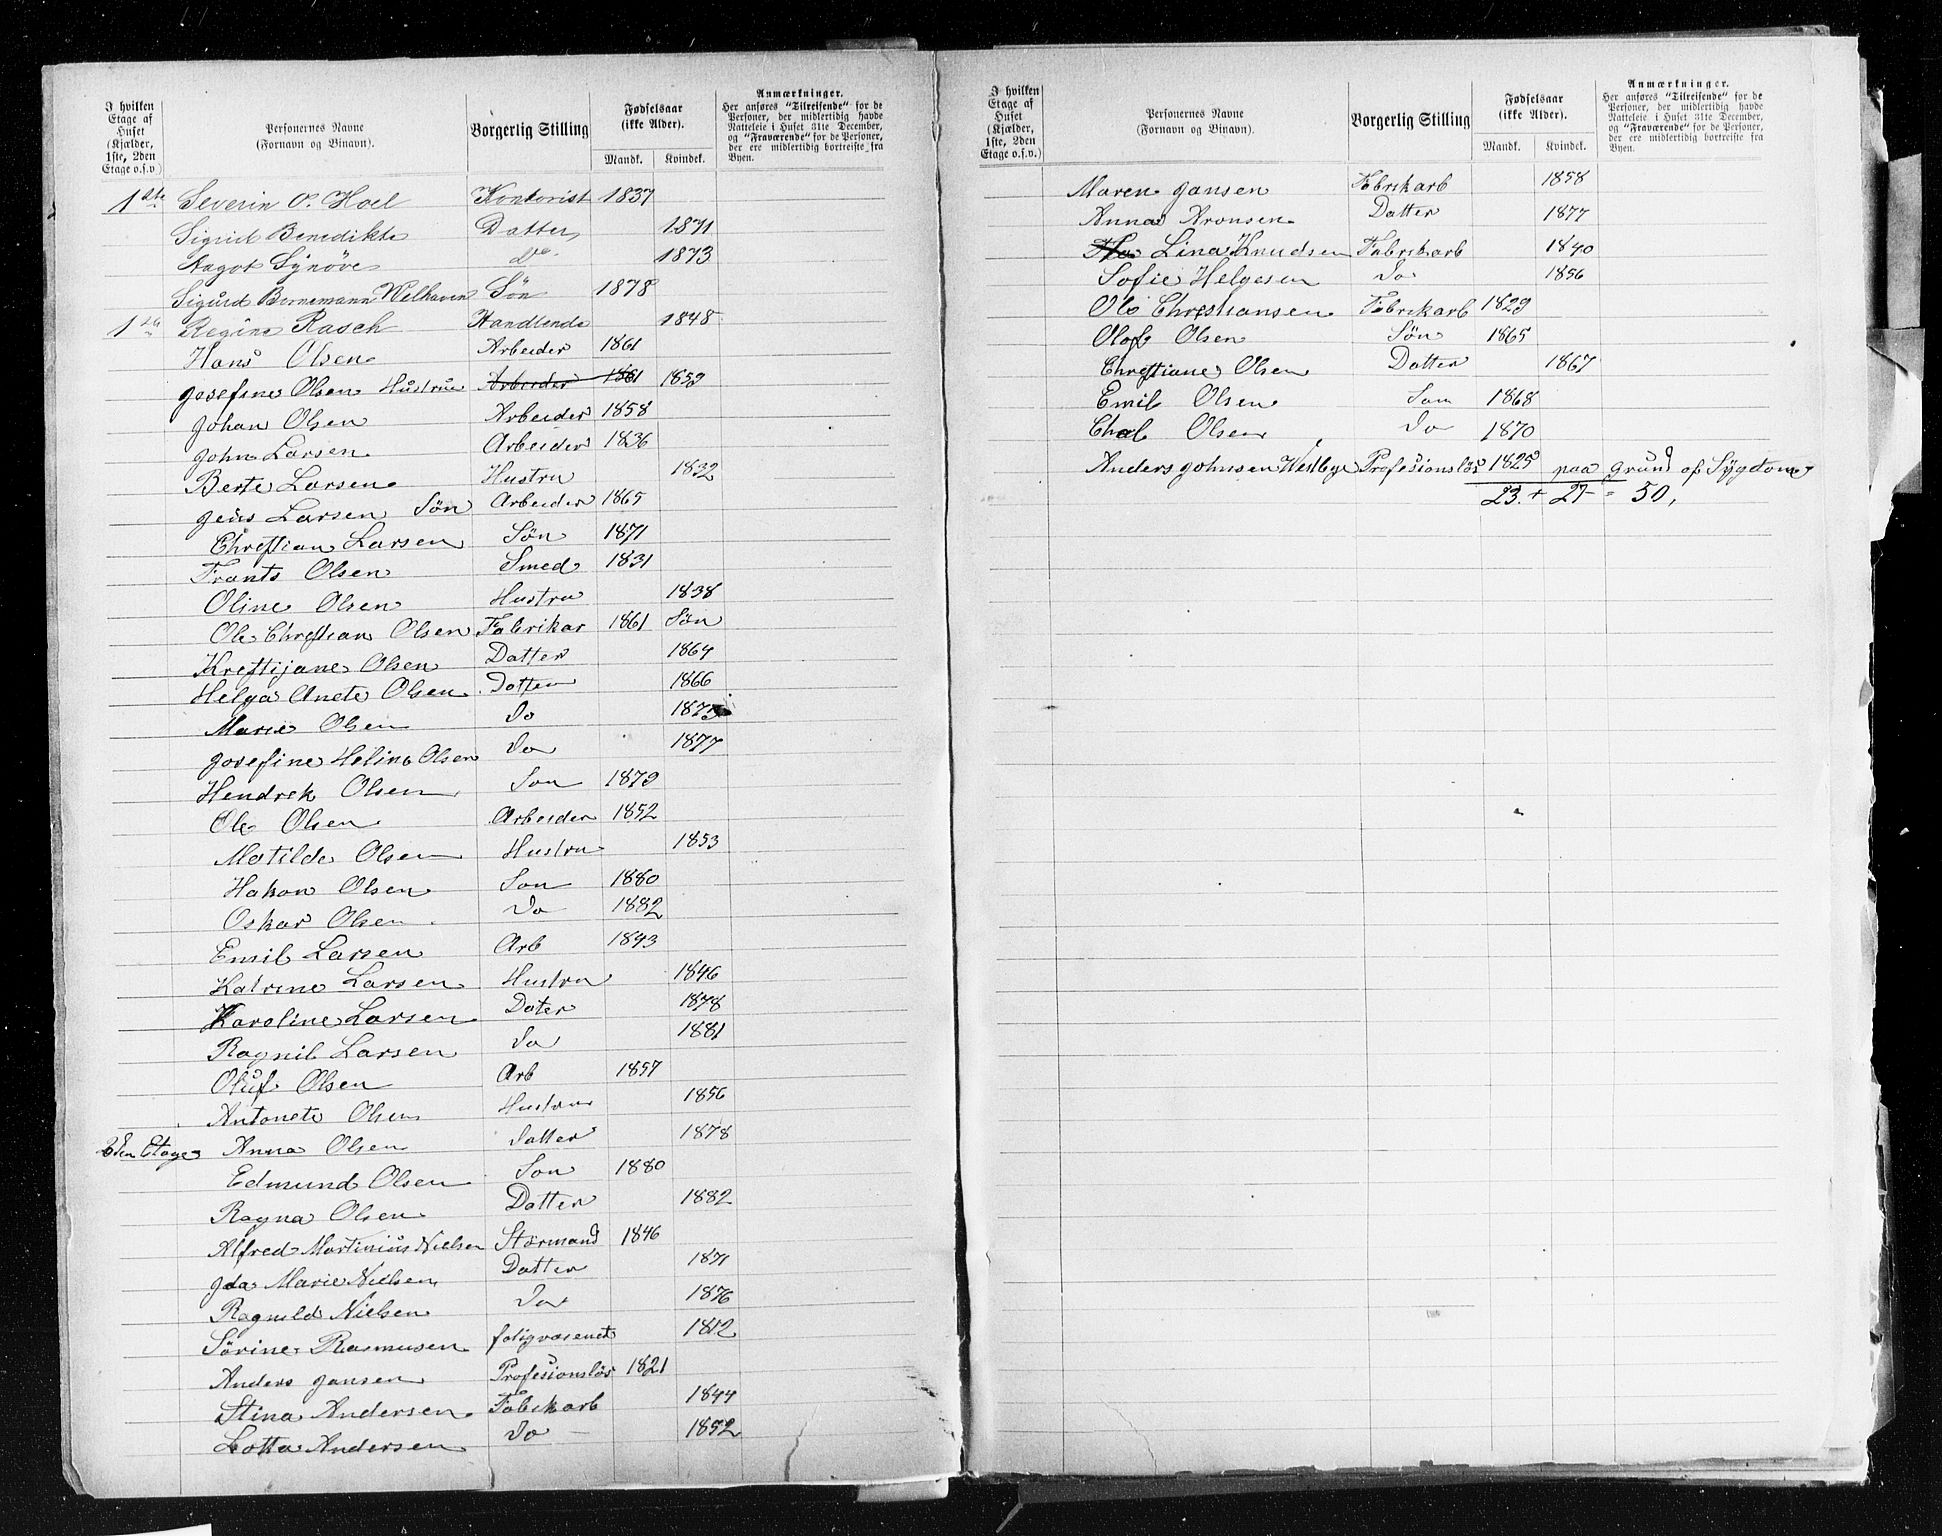 I hvilken Etage af Huset (Kjælder, 1ste, 2den Etage o.s.v)
Personernes Navne (Fornavn og Binavn).
Borgerlig Stilling
Fødselsaar (ikke Alder).
Mandk. Kvindek.
Anmærkninger.
Her anføres "Tilreisende" for de Personer, der midlertidig havde Natteleie i Huset 31te December, og "Fraværende" for de Personer, der ere midlertidig bortreiste fra Byen.
1ste Severin O. Hoel Kontorist 1837
Sigrid Benedikte Datter 1871
Aagot Synøve Do 1873
Sigurd Bornemann Welhaven Søn 1878
1ste Regine Rasch Handlende 1848
Hans Olsen Arbeider 1861
Josefine Olsen Hustrue Arbeider 1861 1859
Johan Olsen Arbeider 1858
John Larsen Arbeider 1836
Berte Larsen Hustru 1832
Jens Larsen Søn Arbeider 1865
Christian Larsen Søn 1871
Frants Olsen Smed 1831
Oline Olsen Hustru 1838
Ole Christian Olsen Fabrikar 1861 Søn
Kristijane Olsen Datter 1864
Helga Anete Olsen Datter 1866
Marie Olsen Do 1875
Josefine Heline Olsen Do 1877
Hendrek Olsen Son 1879
Ole Olsen Arbeider 1852
Matilde Olsen Hustru 1853
Hakon Olsen Son 1880
Oskar Olsen Do 1882
Emil Larsen Arb 1843
Katrine Larsen Hustru 1846
Karoline Larsen Dater 1878
Ragnil Larsen Do 1881
Oluf Olsen Arb 1857
Antonete Olsen Hustru 1856
2den Etage Anna Olsen Datter 1878
Edmund Olsen Son 1880
Ragna Olsen Datter 1882
Alfred Martinius Nielsen Störmand 1846
Jda Marie Nielsen Datter 1871
Ragnild Nielsen Do 1876
Sörine Rasmusen fatigvæsenet 1812
Anders Jansen Profesionslös 1821
Stina Andersen Fabrikarb 1844
Lotta Andersen Do 1852
I hvilken Etage af Huset (Kjælder, 1ste, 2den Etage o.s.v.)
Personernes Navne (Fornavn og Binavn).
Borgerlig Stilling
Fødselsaar (ikke Alder).
Mandk. Kvindek.
Anmærkninger.
Her anføres "Tilreisende" for de Personer, der midlertidig havde Natteleie i Huset 31te December, og "Fraværende" for de Personer, der ere midlertidig bortreiste fra Byen.
Maren Jansen Fabrikarb 1858
Anna Aronsen Datter 1877
Lina Knudsen Fabrikarb 1840
Sofie Helgesen Do 1856
Ole Christiansen Fabrikarb 1829
Olof Olsen Søn 1865
Christiane Olsen Datter 1867
Emil Olsen Søn 1868
Olsen Do 1870
Anders Johnsen Westbye Profesionslös 1825 paa Grund af Sygdom
23 + 27 = 50,